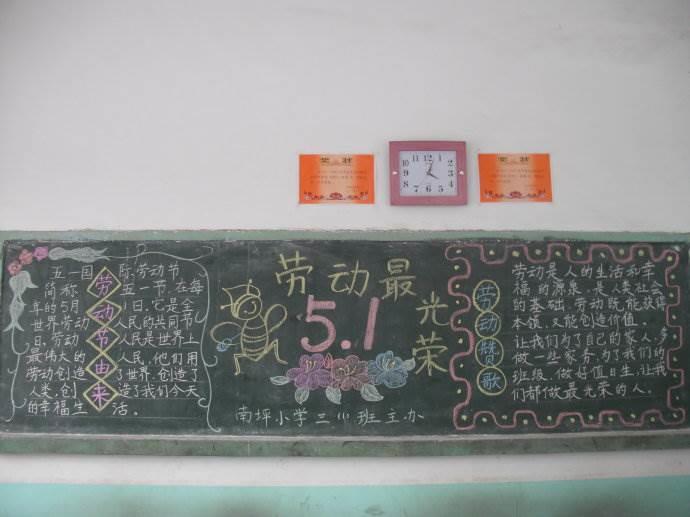 奖状
奖状
10 11 12 1 2
9 3
8 7 6 5 4
五一国际劳动节
简称五一节，在每
年的5月1日。它是全
世界劳动人民的共同节
日。劳动人民是世界上
最伟大的人民，他们用
劳动创造了世界，创造了
人类，创造了我们今天
的幸福生活。
劳动节由来
劳动最光荣
5.1
南坪小学三(1)班主办
劳动赞歌
劳动是人的生活和幸
福的源泉，是人类社会
的基础，劳动既能获得
本领，又能创造价值。
让我们为了自己的家人，多
做一些家务，为了我们的
班级，做好值日生，让我
们都做最光荣的人。